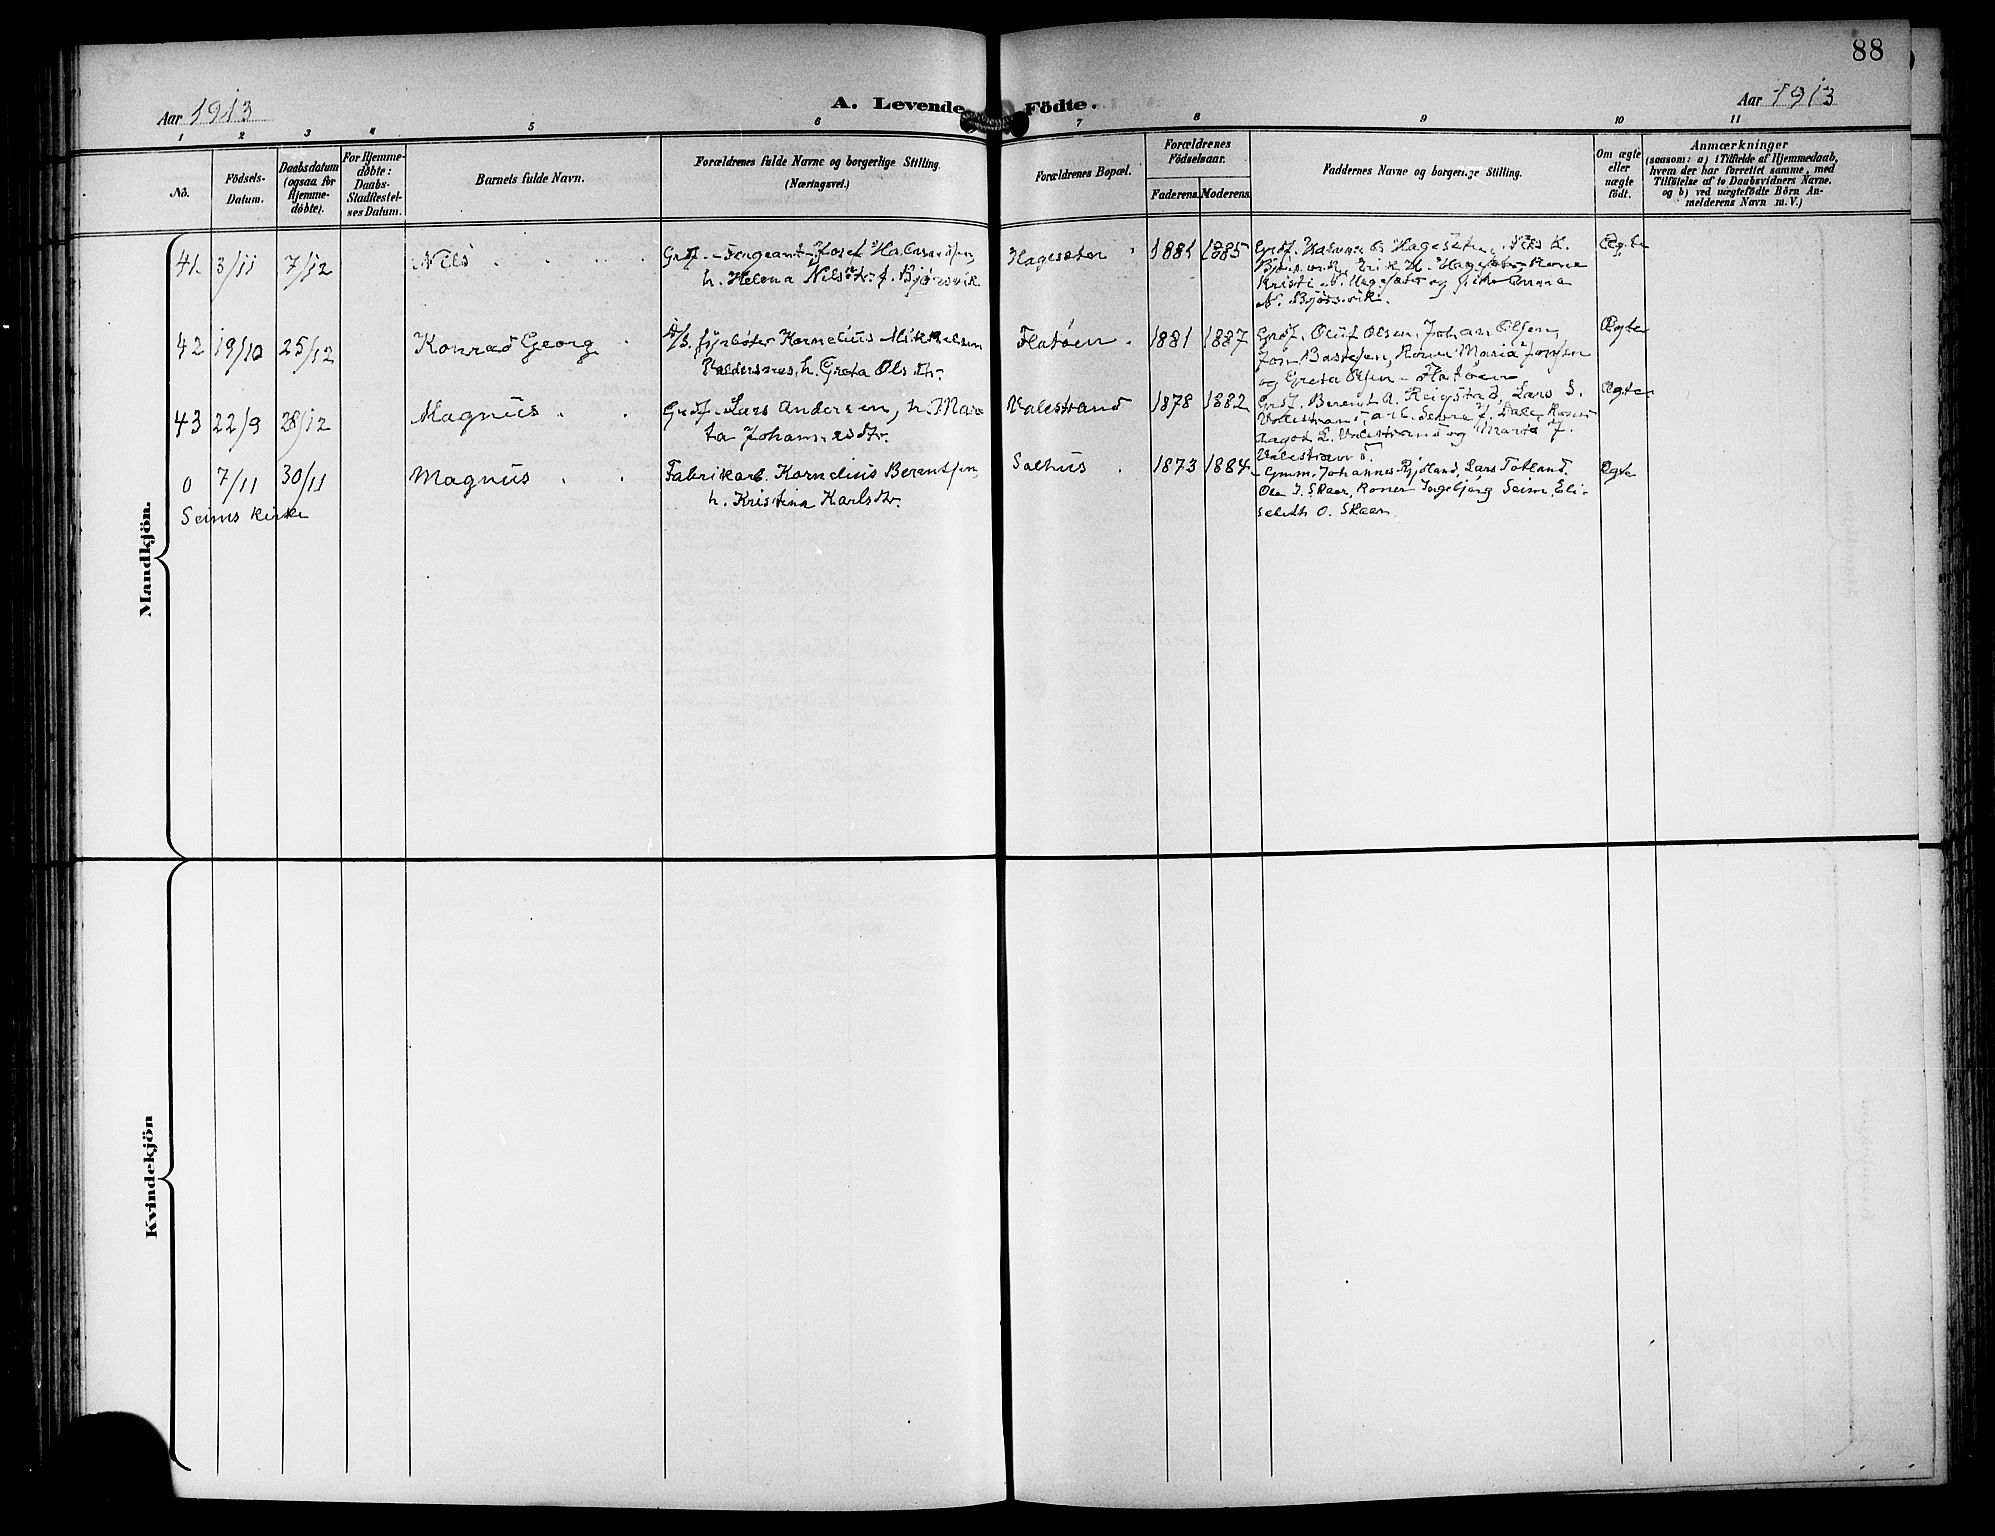 88
Aar 1913
A. Levende Födte.
Aar 1913
1 2 3 4 5 6 7 8 9 10 11
No.
Födsels-
Datum.
Daabsdatum
(ogsaa for
Hjemme-
döbte).
For Hjemme-
döbte:
Daabs-
Stadfæstel-
ses Datum.
Barnets fulde Navn.
Forældrenes fulde Navne og borgerlige Stilling.
(Næringsvei.)
Forældrenes Bopæl.
Forældrenes
Födselsaar.
Faderens. Moderens.
Faddernes Navne og borgerlige Stilling.
Om ægte
eller
uægte
födt.
Anmærkninger
(saasom: a) i Tilfælde af Hjemmedaab,
hvem der har forrettet samme, med
Tilföielse af to Daabsvidners Navne.
og b) ved uægtefödte Börn An-
melderens Navn m. V.)
Mandkjön.
41 3/11 7/12 Nils
Grdf.-Sergeant-Josef
h. Helena Nilsdtr. f. Bjørsvik
Hageseter 1881 1885
Grdf. Hageseter, Nils K.
Erik H. Kone
Kristi Hageseter og
N. Bjørsvik.
Ægte
42 19/10 25/12 Konrad Georg
fyrbøter Kornelius Mikkelsen
h. Greta Olsdtr.
Flatøen 1881 1887
Grdf. Oluf Olsen, Johan Olsen,
Jon Bastesen, Kone Maria Jonsen
og Greta Olsen - Flatøen
Ægte
43 22/9 28/12 Magnus
Grdf. Lars Andersen, h. Mar
ta Johannesdtr.
Valestrand 1878 1882
Grdf. Berent A. Reigstad, Lars S.
Valestrand, arb. J. Dale, Kone
Aagot L. Valestrand og Marta J.
Valestrand.
Ægte
0 7/11 30/11 Magnus
Seims kirke
Fabrikarb. Kornelius Berentsen,
h. Kristina Karlsdtr.
Salhus 1873 1884
Gmm. Johannes Lars Totland,
Ola J. Skaar, Koner Ingebjørg Seim, Eli-
sabeth O. Skaar
Ægte
Kvindekjön